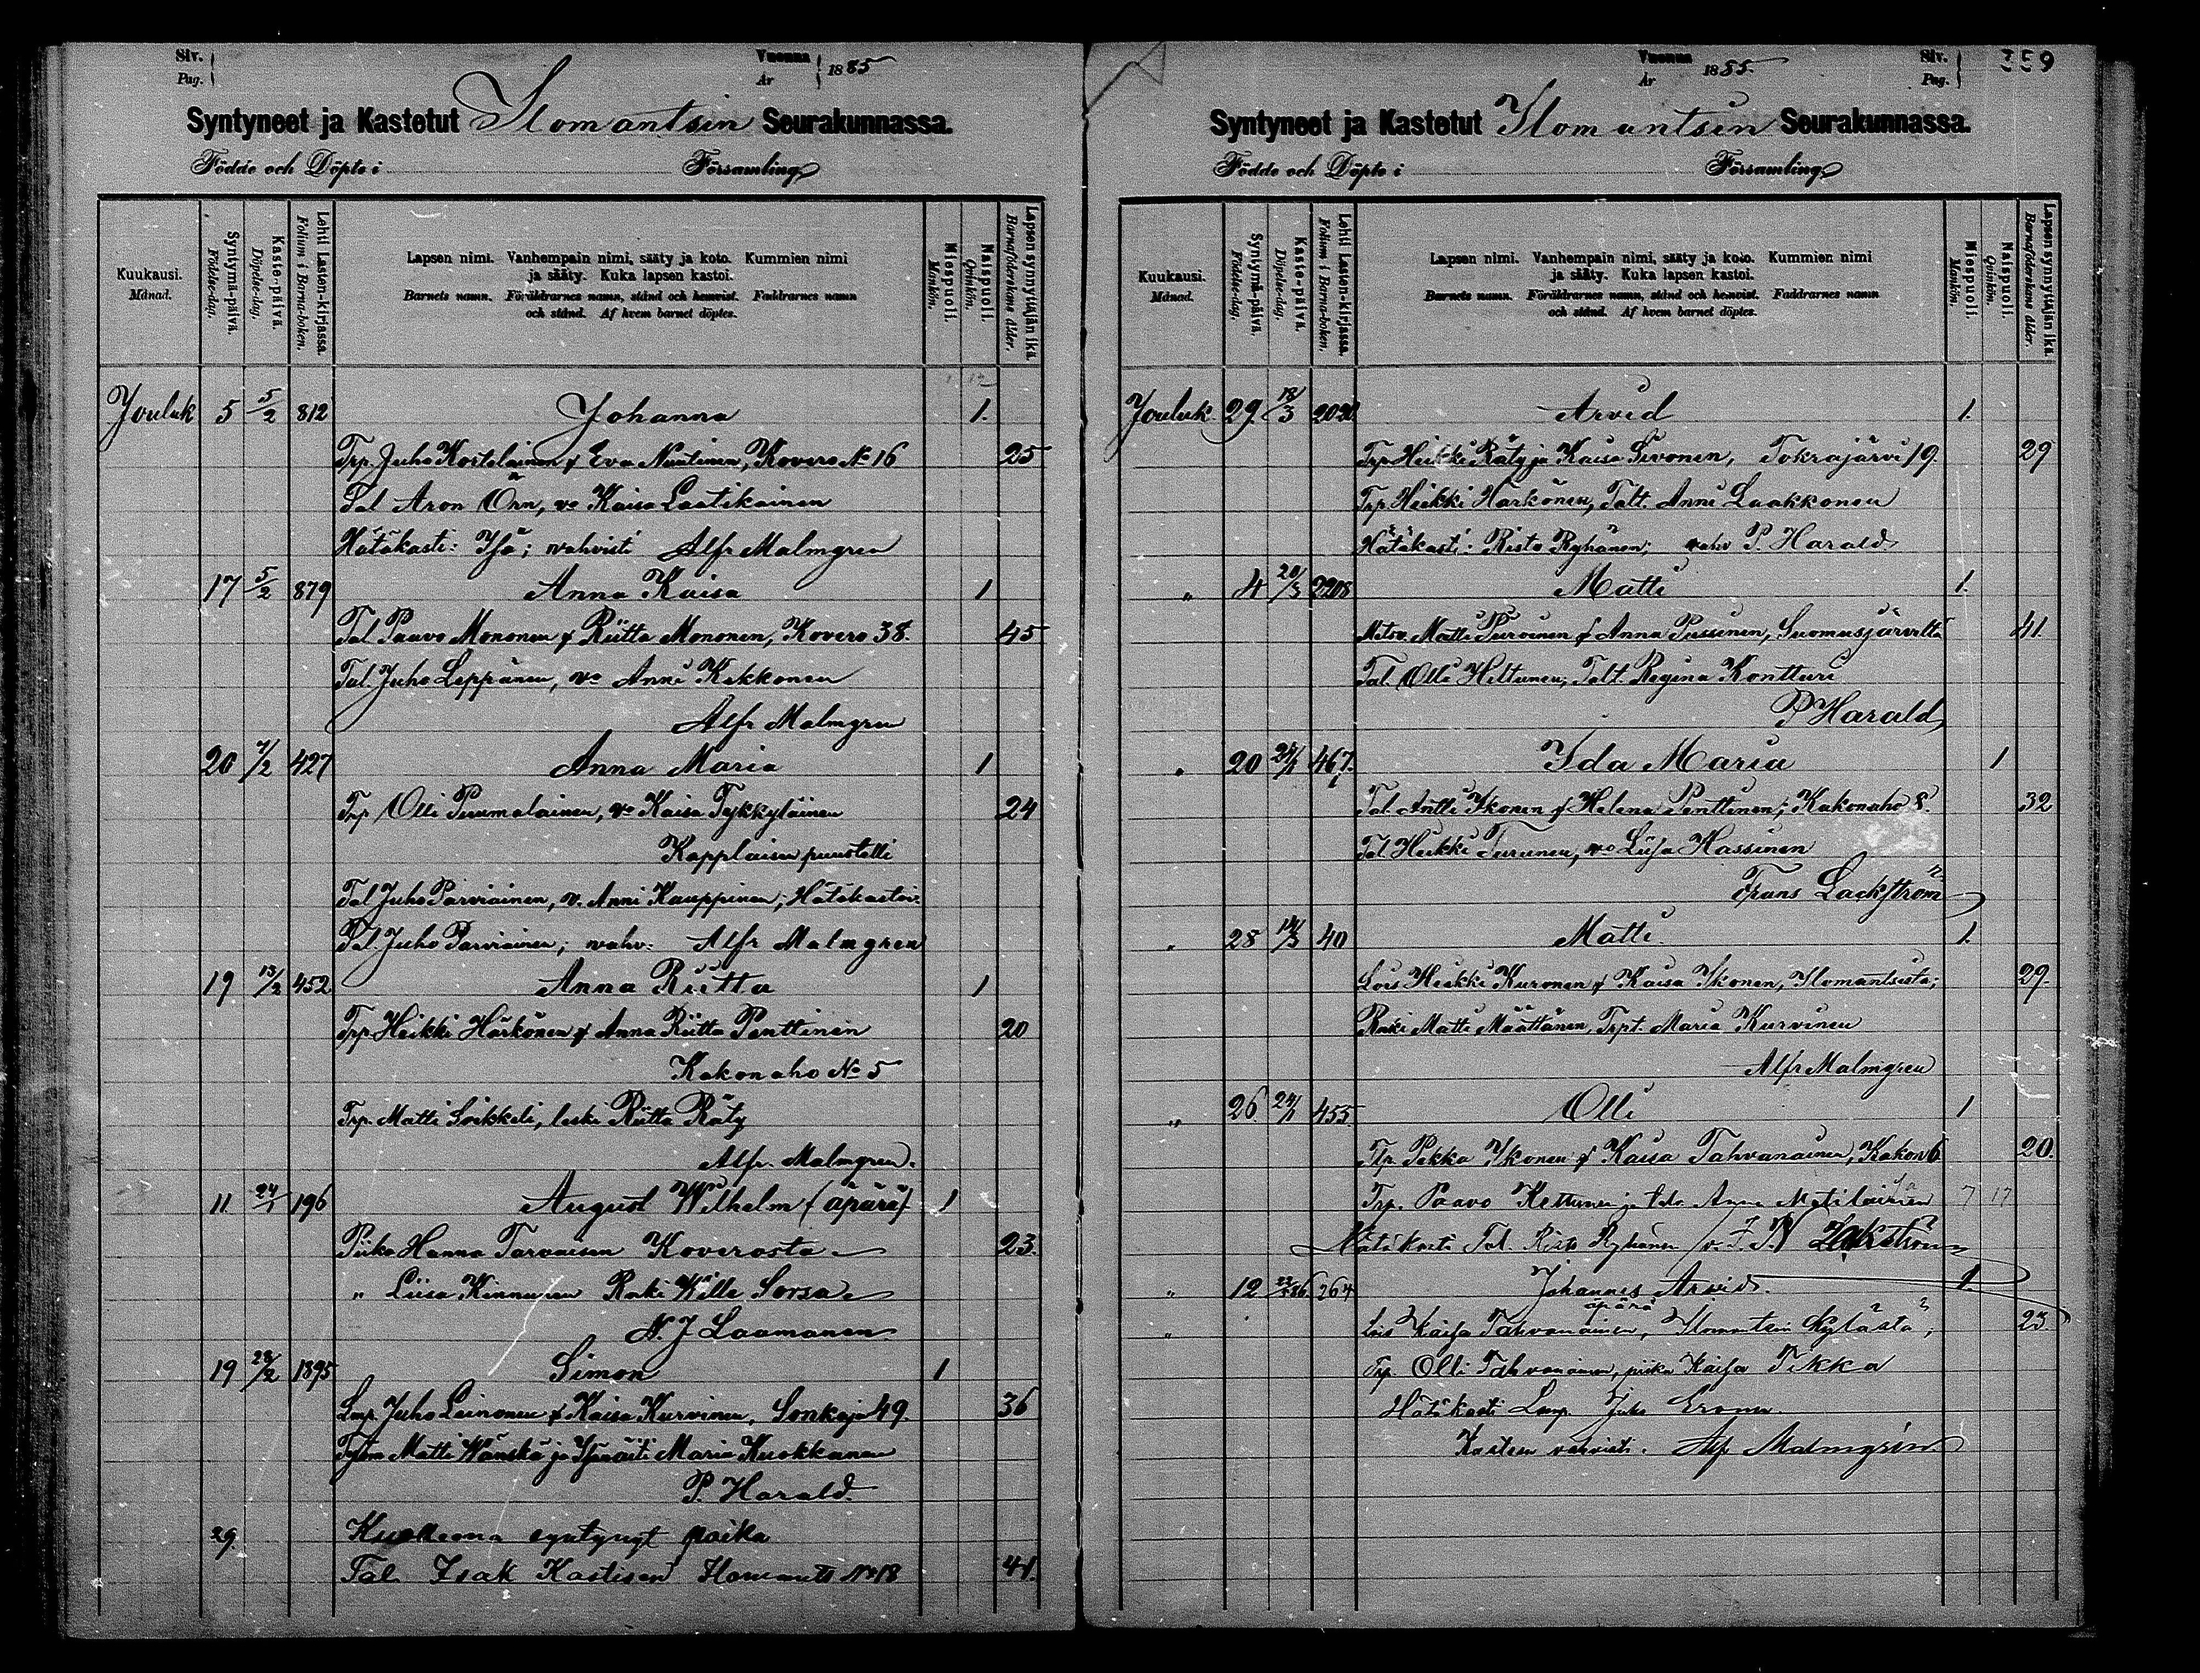 Siv.
Pag.
Vuonna
År
1885
Syntyneet ja Kastetut Ilomantsin Seurakunnassa.
Födde och Döpte i Församling
Kuukausi.
Månad.
Syntymä-päivä.
Födelse-dag.
Kaste-päivä.
Döpelse-dag.
Lehti Lasten-kirjassa.
Folium i Barna-boken.
Lapsen nimi. Vanhempain nimi, sääty ja koto. Kummien nimi
ja sääty. Kuka lapsen kastoi.
Barnets namn. Föräldrarnes namn, stånd och hemvist. Faddrarnes namn
och stånd. Af hvem barnet döptes.
Miespuoli.
Mankön.
Naispuoli.
Qvinkön.
Lapsen synnyttäjän ikä.
Barnaföderskans ålder.
Jouluk 5 5/2 812 Johanna 1.
Trp. Juho Kostolainen & Eva Nuutinen, Kovero No 16 25
Tal Aron Örn, vo Kaisa Laatikainen
Hätäkasti: Isä; vahvisti Alfr Malmgren
17 5/2 879 Anna Kaisa 1
Tal Paavo Mononen & Riitta Mononen, Kovero 38. 45
Tal. Juho Leppänen, vo Anni Kekkonen
Alfr Malmgren
20 7/2 427 Anna Maria 1
Trp Olli Puumalainen, vo Kaisa Tykkyläinen 24
Kapplaisen puustelli
Tal Juho Parviainen, v. Anni Kauppinen; Hätäkastoi
Tal. Juho Parviainen; vahv: Alfr Malmgren
19 13/2 452 Anna Riitta 1
Trp. Heikki Härkönen & Anna Riitta Penttinen 20
Kakonaho No 5
Trp. Matti Soikkeli, leski Riitta Räty
Alfr. Malmgren.
11 24/1 196 August Wilhelm (äpärä) 1
Piika Hanna Tarvaisen Koverosta 23.
" Liisa Kinnunen Renki Wille Sorsa
N. J Laamanen
19 28/2 1895 Simon 1
Lmp. Juho Leinonen & Kaisa Kurvinen, Sonkaja 49. 36
Matti Wänskä ja Maria Kuokkanen
P. Harald.
29 Kuolleena syntynyt poika
Tal. Isak Kastisen Ilomants No 18 41.
Vuonna
År
1885.
Siv.
Pag.
359
Syntyneet ja Kastetut Ilomantsin Seurakunnassa.
Födde och Döpte i Församling
Kuukausi.
Månad.
Syntymä-päivä.
Födelse-dag.
Kaste-päivä.
Döpelse-dag.
Lehti Lasten-kirjassa.
Folium i Barna-boken.
Lapsen nimi. Vanhempain nimi, sääty ja koto. Kummien nimi
ja sääty. Kuka lapsen kastoi.
Barnets namn. Föräldrarnes namn, stånd och hemvist. Faddrarnes namn
och stånd. Af hvem barnet döptes.
Miespuoli.
Mankön.
Naispuoli.
Qvinkön.
Lapsen synnyttäjän ikä.
Barnaföderskans ålder.
Jouluk. 29. 18/3 Arvid 1.
Trp Heikki Räty ja Kaisa Sivonen, Tokrajärvi 19. 29
Trp Heikki Härkönen, Talt. Anni Laakkonen
Hätäkasti: Risto Ryhänen; vahv P. Harald
" 4 20/3 2208 Matti 1.
Metsv. Matti Purvinen & Anna Pussinen, Suomusjärveltä 41.
Tal. Olli Hiltunen, Talt. Regina Kontturi
P Harald
" 20 24/1 467. Ida Maria 1
Tal. Antti Ikonen & Helena Penttinen; Kakonaho 8. 32
Tal. Heikki Turunen, vo Liisa Hassinen
Frans Lackström
" 28 14/3 40 Matti. 1.
Lois Heikki Kuronen & Kaisa Ikonen, Ilomantsista; 29.
Renki Matti Määttänen, Trpt. Maria Kurvinen
Alfr Malmgren
" 26. 24/1 455. Olli 1
Trp. Pekka Ikonen & Kaisa Tahvanainen, Kakon 6 20.
Trp. Paavo Kettunen ja Anna Matilainen 7 17
Hätäkasti Tal. Risto Ryhänen
" 12 264 Johannes Arvid. 1.
äpärä
" Lois Kaisa Tahvanainen, Ilomantsin kylästä; 23.
Trp. Olli Tahvanainen, piika Kaisa Tikka
Hätäkasti Lmp. Juho Eronen
Kasteen vahvisti. Alf Malmgrén